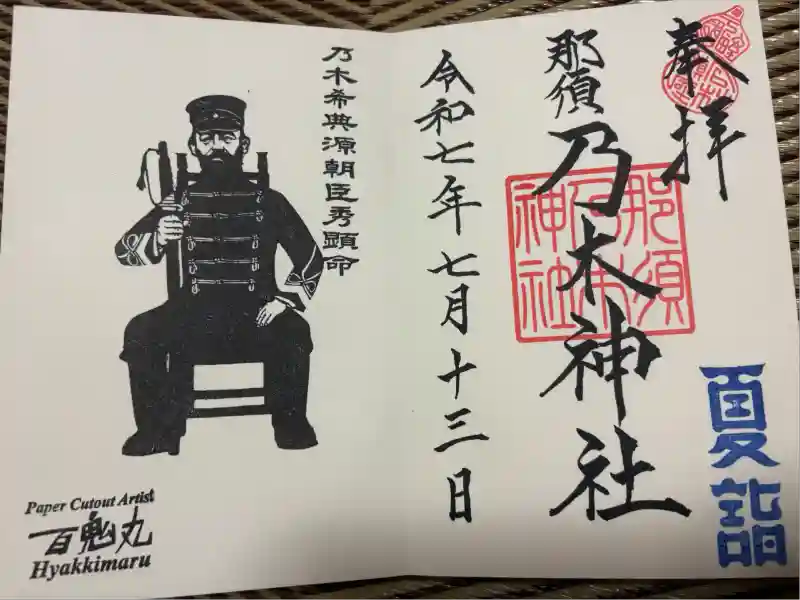 奉拝
那須乃木神社
那須乃木神社
夏詣
令和七年七月十三日
乃木希典源朝臣秀顕命
Paper Cutout Artist
百鬼丸
Hyakkimaru